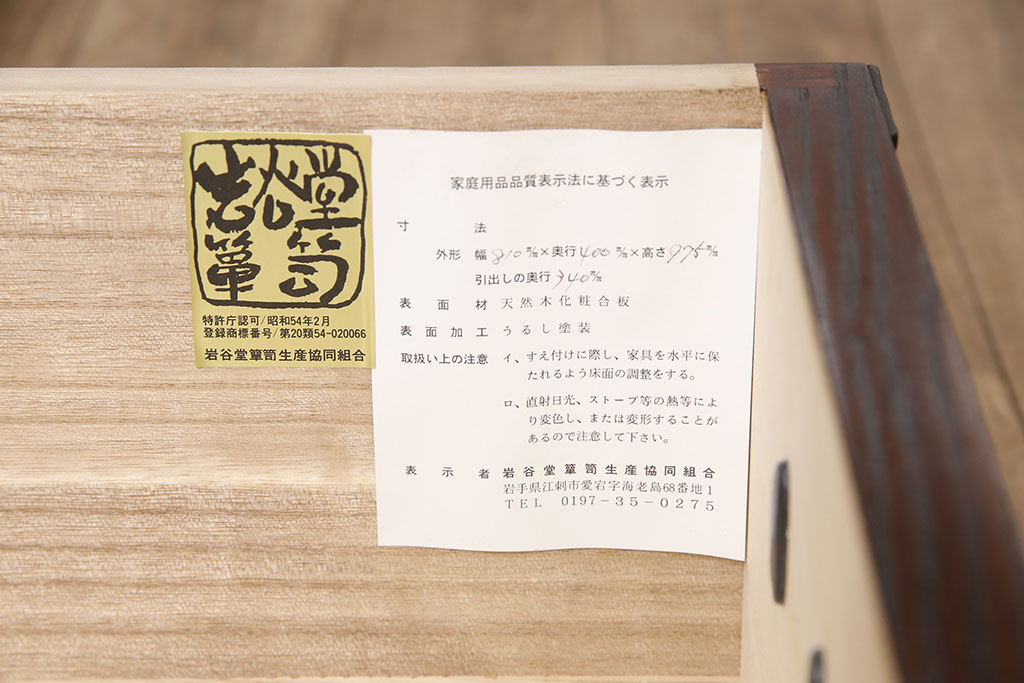 岩谷堂簞笥
特許庁認可/昭和54年2月
登録商標番号/第20類54-020066
岩谷堂簞笥生産協同組合
家庭用品品質表示法に基づく表示
寸法
外形 幅810㎜×奥行400㎜×高さ975㎜
引出しの奥行340㎜
表面材 天然木化粧合板
表面加工 うるし塗装
取扱い上の注意 イ、すえ付けに際し、家具を水平に保
たれるよう床面の調整をする。
ロ、直射日光、ストーブ等の熱等によ
り変色し、または変形することが
あるので注意して下さい。
表示者 岩谷堂簞笥生産協同組合
岩手県江刺市愛宕字海老島68番地1
TEL 0197-35-0275